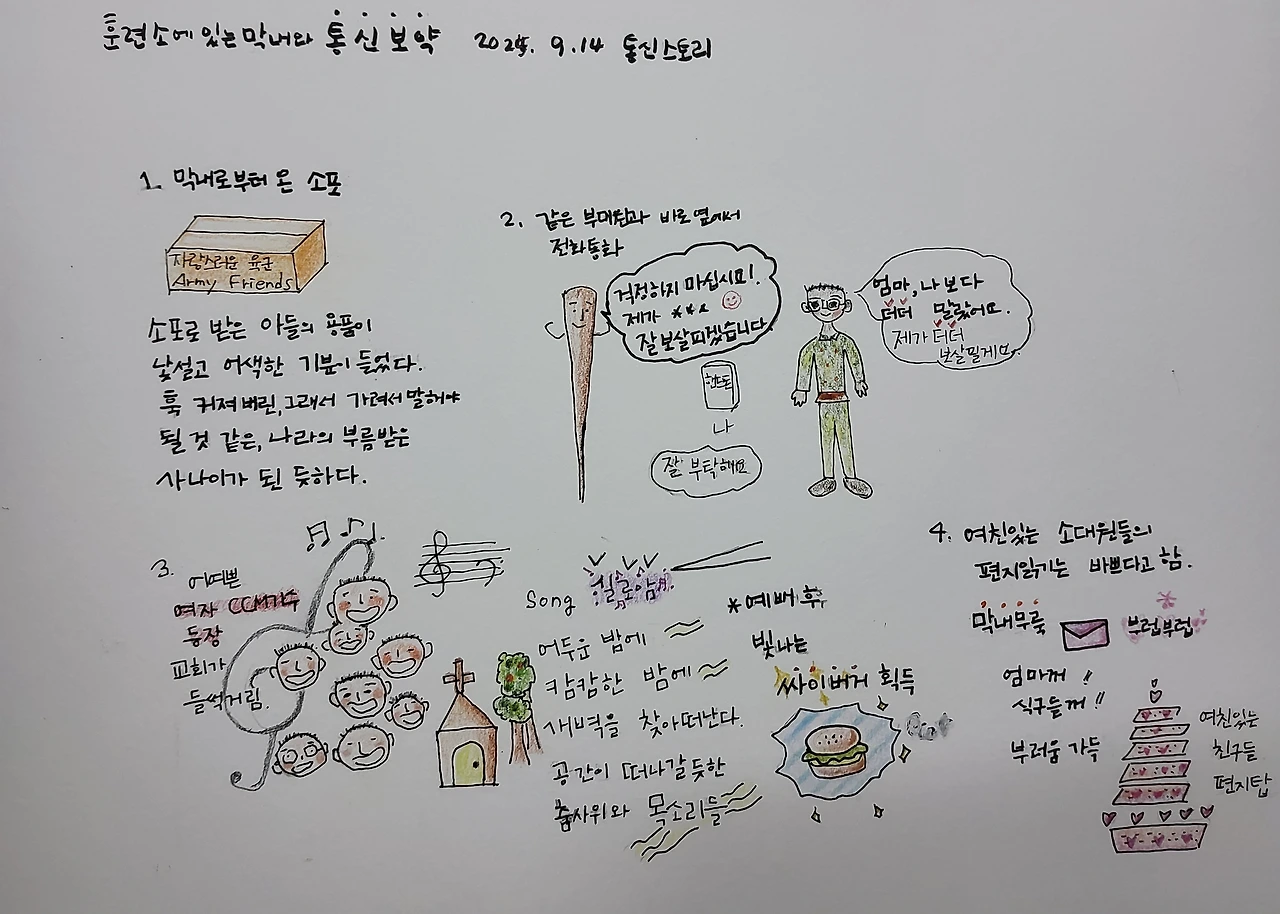 훈련소에 있는 막내와 통신보약 2025. 9. 14 통신스토리
1. 막내로부터 온 소포
자랑스러운 육군
Army Friends
소포로 받은 아들의 용품이
낯설고 어색한 기분이 들었다.
훅 커져버린, 그래서 가려서 말해야
될 것 같은, 나라의 부름받은
사나이가 된 듯하다.
2. 같은 부대원과 바로 옆에서
전화통화
걱정하지 마십시요!
제가 ***
잘 보살피겠습니다.
핸드폰
나
잘 부탁해요
엄마, 나보다
더더 말랐어요.
제가 더더
보살필게요.
3.
어여쁜
여자 CCM가수
등장
교회가
들썩거림.
Song 실로암
어두운 밤에
캄캄한 밤에
새벽을 찾아 떠난다.
공간이 떠나갈 듯한
춤사위와 목소리들
*예배 후,
빛나는
싸이버거 획득
4. 여친있는 소대원들의
편지읽기는 바쁘다고 함.
막내무룩
부럽부럽
엄마께!!
식구들께!!
부러움 가득
여친있는
친구들
편지탑